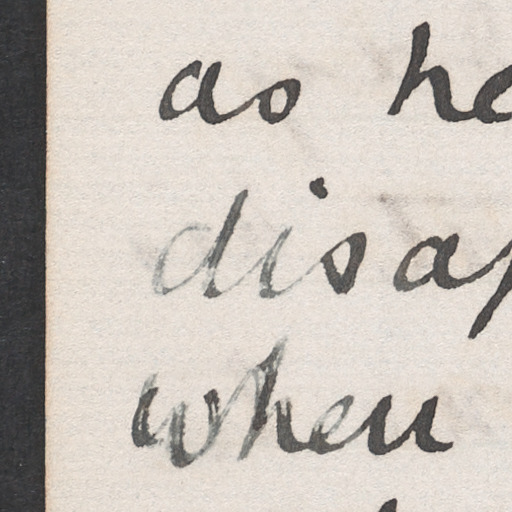 as he
disap
when